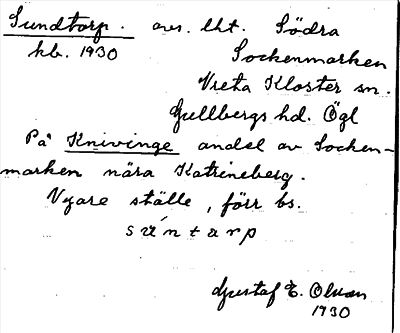 Sundtorp. avs. lht. Södra
kb. 1930 Sockenmarken
Vreta Kloster sn.
Gullbergs hd. Ögl
På Knivinge andel av Socken-
marken nära Katrineberg.
Nyare ställe, förr bs.
súntarp
Gustaf E. Olsson
1930